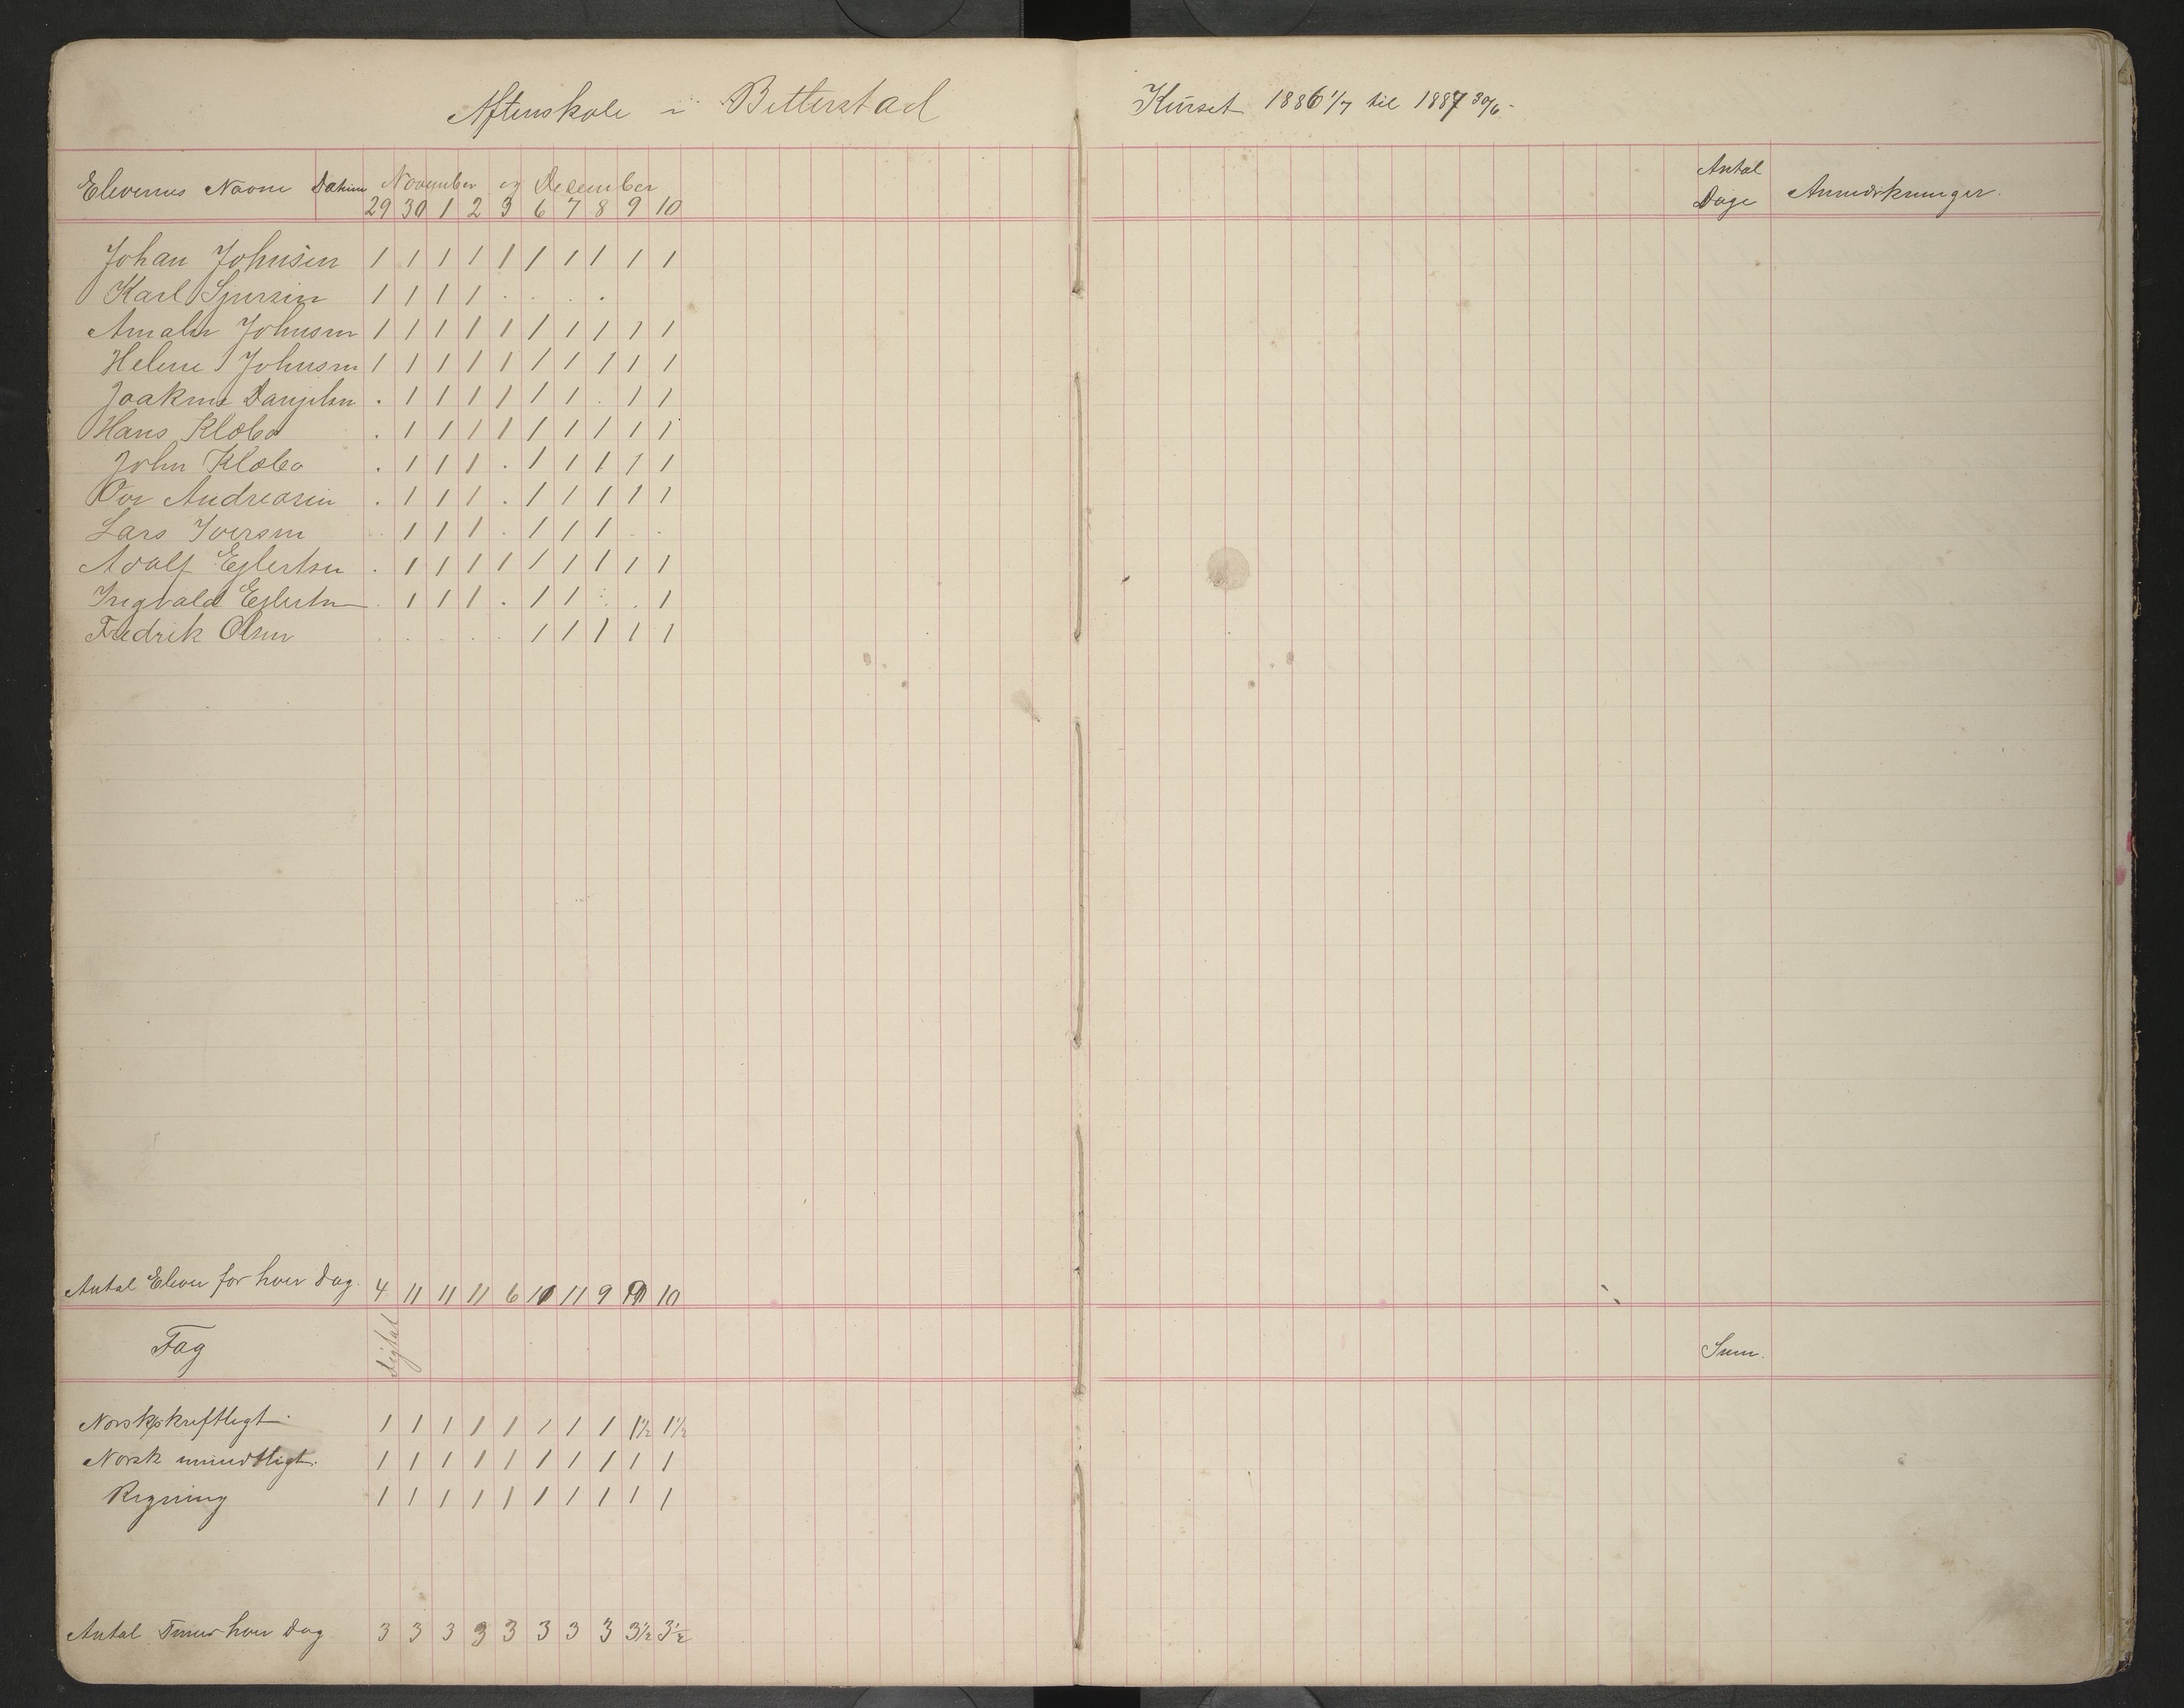 Aftenskole i Bitterstad
Kurset 1886 1/7 til 1887 30/6.
Elevernes Navne Datum November og December
29 30 1 2 3 6 7 8 9 10
Antal Dage Anmærkninger.
Johan Johnsen 1 1 1 1 1 1 1 1 1 1
Karl Sjursen 1 1 1 1 . . . .
Amalie Johnsen 1 1 1 1 1 1 1 1 1 1
Helene Johnsen 1 1 1 1 1 1 1 1 1 1
Joakim Danjelsen . 1 1 1 1 1 1 . 1 1
Hans Klæbo . 1 1 1 1 1 1 1 1 1
John Klæbo . 1 1 1 . 1 1 1 1 1
Ove Andreasen . 1 1 1 . 1 1 1 1 1
Lars Iversen . 1 1 1 . 1 1 1 . .
Adolf Ejlertsen . 1 1 1 1 1 1 1 1 1
Ingvald Ejlertsen . 1 1 1 . 1 1 . . 1
Fredrik Olsen . . . . . 1 1 1 1 1
Antal Elever for hver Dag. 4 11 11 11 6 10 11 9 9 10
Fag Sum.
Norsk skriftligt. 1 1 1 1 1 1 1 1 1½ 1½
Norsk mundtligt. 1 1 1 1 1 1 1 1 1 1
Regning 1 1 1 1 1 1 1 1 1 1
Antal Timer hver Dag 3 3 3 3 3 3 3 3 3½ 3½